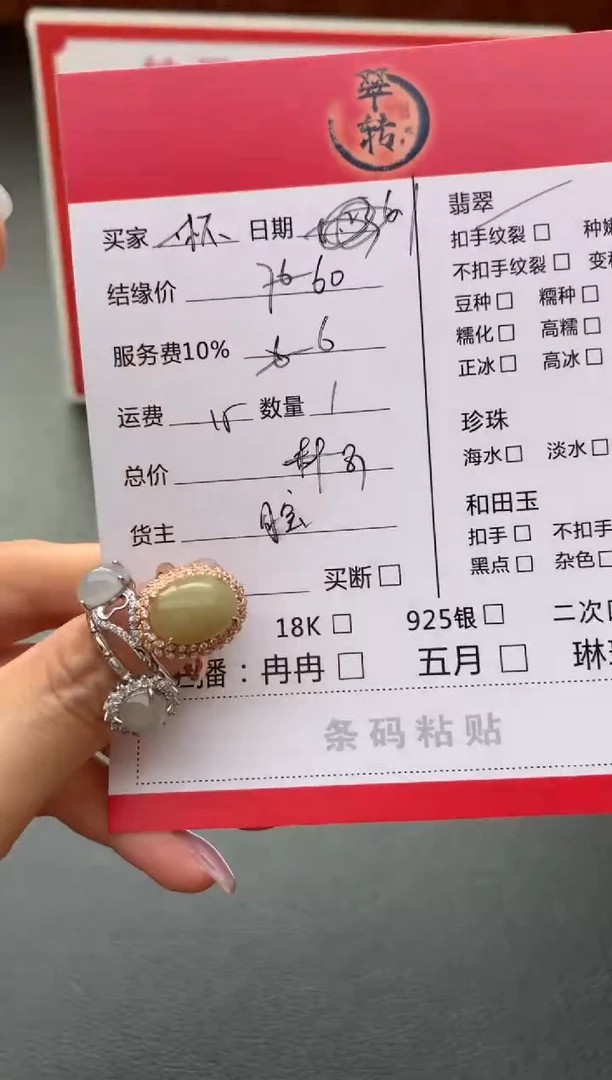 翠转
买家 日期
结缘价 60
服务费10% 6
运费 15 数量 1
总价
货主
买断 □
18K □ 925银 □ 二次
播：冉冉 □ 五月 □ 琳
条码粘贴
翡翠
扣手纹裂 □ 种嫩
不扣手纹裂 □ 变种
豆种 □ 糯种 □
糯化 □ 高糯 □
正冰 □ 高冰 □
珍珠
海水 □ 淡水 □
和田玉
扣手 □ 不扣手
黑点 □ 杂色 □